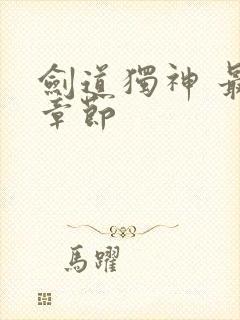 劍道獨神 最
章節
馬躍